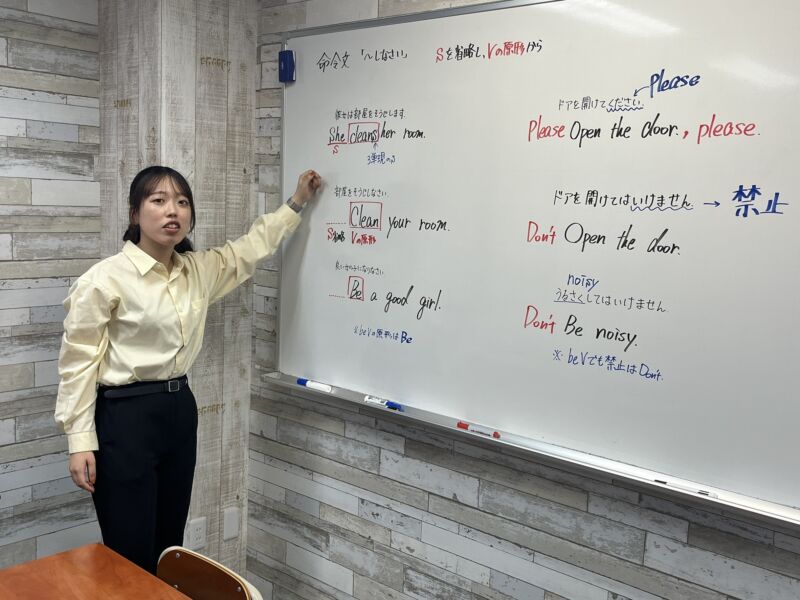 命令文 「～しなさい」 Sを省略し、Vの原形から
彼女は部屋をそうじします。
She cleans her room.
S
3単現のs
部屋をそうじしなさい
Clean your room.
S省略 Vの原形
良い女の子になりなさい
Be a good girl.
※beVの原形はBe
Please
ドアを開けてください。
Please Open the door., please.
ドアを開けてはいけません → 禁止
Don't Open the door.
noisy
うるさくしてはいけません
Don't Be noisy.
※ beVでも禁止はDon't.